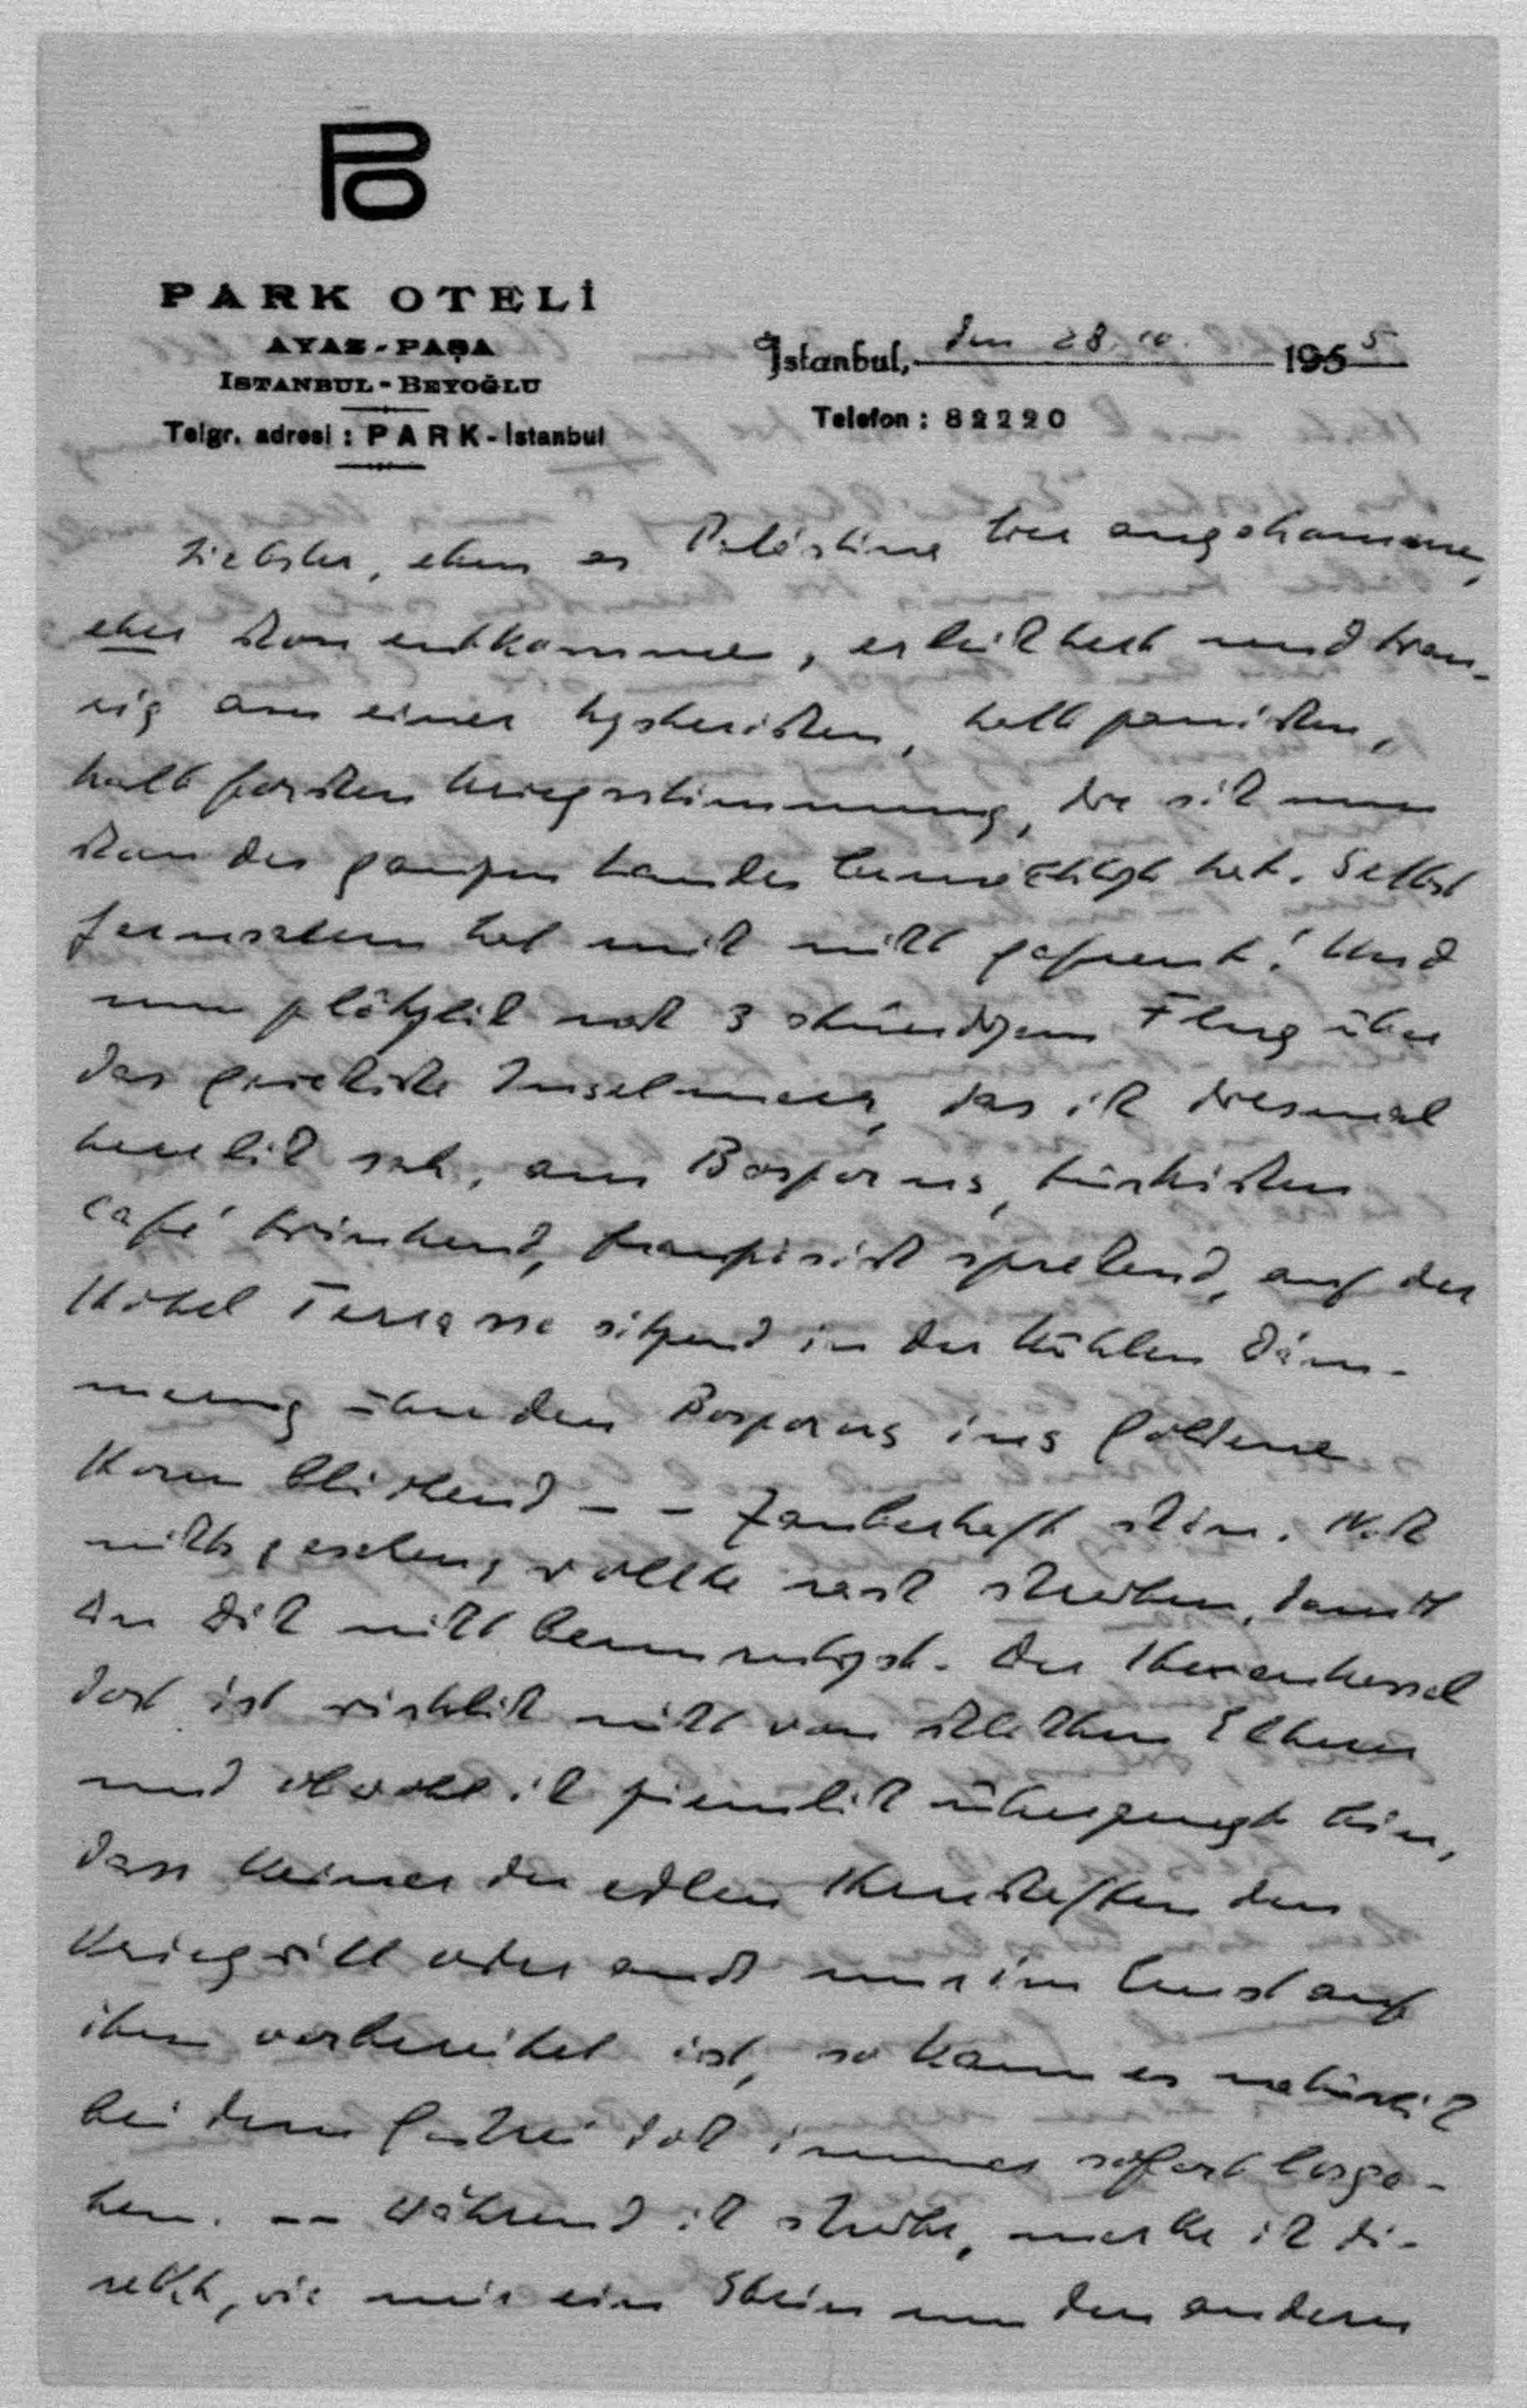 PO
PARK OTELİ
AYAZ-PAŞA
ISTANBUL - BEYOĞLU
Telgr. adresi : PARK - İstanbul
İstanbul, den 28. 10. 1955
Telefon : 82220
Liebster, eben aus Palästina hier angekommen,
eher schon entkommen, erleichtert und trau-
rig aus einer hysterischen, halb panischen,
halb forschen Kriegsstimmung, die sich nun
schon des ganzen Landes bemächtigt hat. Selbst
Jerusalem hat mich nicht gefreut! Und
nun plötzlich nach 3 stündigem Flug über
das griechische Inselmeer, das ich diesmal
herrlich sah, am Bosporus, türkischen
Café trinkend, französisch sprechend, auf der
Hotel Terrasse sitzend in der kühlen Däm-
merung über den Bosporus ins Goldene
Horn blickend - - zauberhaft schön. Noch
nichts gesehen, wollte rasch schreiben, damit
Du Dich nicht beunruhigst. Der Hexenkessel
dort ist wirklich nicht von schlechten Eltern
und obwohl ich ziemlich überzeugt bin,
dass keiner der edlen Herrschaften den
Krieg will oder auch nur im Ernst auf
ihn vorbereitet ist, so kann es natürlich
bei dem Geschrei doch immer sofort losge-
hen. -- Während ich schreibe, merke ich di-
rekt, wie mir ein Stein um den anderen